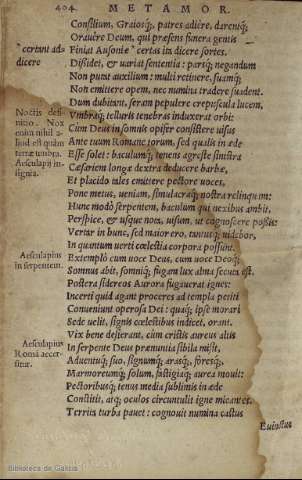 404. METAMOR.
Consilium, Graiosq;, patres adière, dareniq;
Orauère Deum, qui præsens funera gentis
certent ad- Finiat Ausoniæ certas in dicere sortes.
dicere Dißidet, & uariat sententia: parsq; negandum
Non putat auxilium: multi retinere, suamq;
Non emittere opem, nec numina tradere suadent.
Dum dubitant, seram pepulere crepuscula lucem,
Noctis defi- Vmbraq; telluris tenebras induxerat orbi:
nitio. Nox Cum Deus in somnis opifer consistere uisus
enim nihil a- Ante tuum Romane torum, sed qualis in æde
liud est quàm
terræ umbra. Esse solet: baculumq; tenens agreste sinistra
Aesculapij in- Cæsariem longæ dextra deducere barbæ,
signia. Et placido tales emittere pectore uoces,
Pone metus, ueniam, simulacraq; nostra relinquam:
Hunc modò serpentem, baculum qui nexibus ambit,
Perspice, & usque nota, uisum, ut cognoscere possis:
Vertar in hunc, sed maior ero, tantusq; uidebor,
Aesculapius In quantum uerti cœlestia corpora possunt.
in serpentem. Extemplò cum uoce Deus, cum uoce Deoq;
Somnus abit, somniq; fugam lux alma secuta est.
Postera sidereos Aurora fugauerat ignes:
Incerti quid agant proceres ad templa petiti
Conueniunt operosa Dei: quaq; ipse morari
Sede uelit, signis cœlestibus indicet, orant.
Aesculapius Vix bene desierant, cum cristis aureus altis
Romā accer- In serpente Deus prænuntia sibila misit,
situr. Aduentuq; suo, signumq;, arasq;, foresq;,
Marmoreumq; solum, fastigiaq; aurea mouit:
Pectoribusq; tenus media sublimis in æde
Constitit, atq; oculos circuntulit igne micantes.
Territa turba pauet: cognouit numina castus
Euinctus
Biblioteca de Galicia